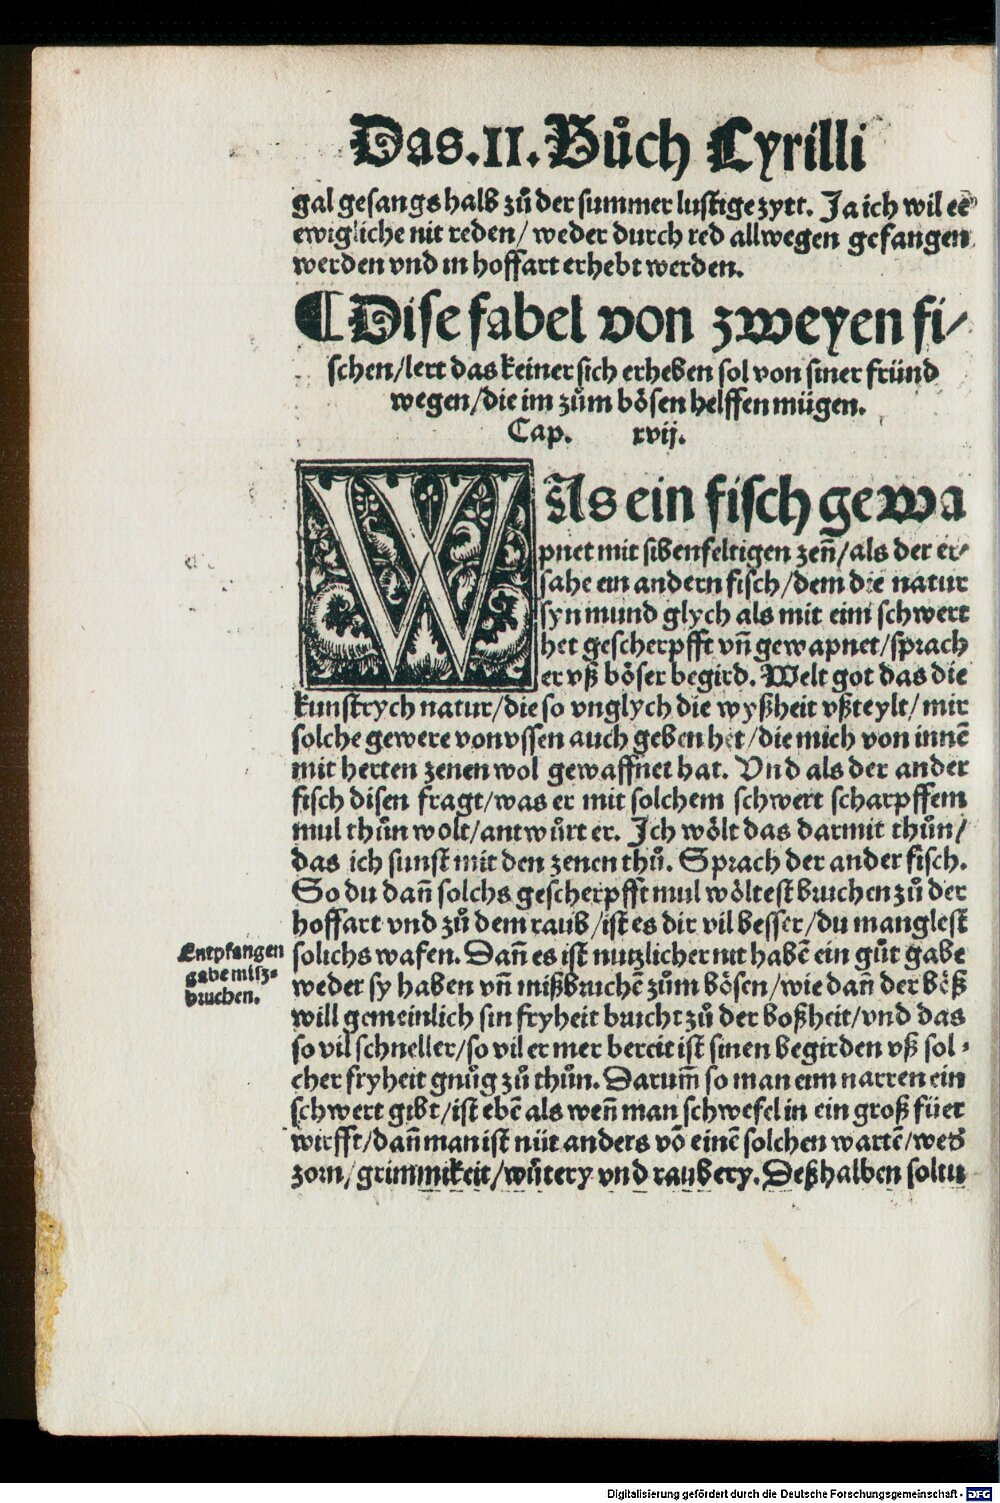 Das.II.Bůch Cyrilli
gal gesangs halb zů der summer lustige zytt. Ja ich wil ee
ewigliche nit reden/ weder durch red allwegen gefangen
werden vnd in hoffart erhebt werden.
¶Dise fabel von zweyen fi/
schen/lert das keiner sich erheben sol von siner fründ
wegen/die im zům bösen helffen mügen.
Cap. xvij.
WAs ein fisch gewa
pnet mit sibenfeltigen zeñ/als der er/
sahe ein andern fisch/dem die natur
syn mund glych als mit eim schwert
het gescherpfft vñ gewapnet/sprach
er vß böser begird. Welt got das die
kunstrych natur/die so vnglych die wyßheit vßteylt/mir
solche gewere von vssen auch geben het/die mich von innē
mit herten zenen wol gewaffnet hat. Vnd als der ander
fisch disen fragt/was er mit solchem schwert scharpffem
mul thůn wolt/antwůrt er. Ich wölt das darmit thůn/
das ich sunst mit den zenen thů. Sprach der ander fisch.
So du dañ solchs gescherpfft mul wöltest bruchen zů der
hoffart vnd zů dem raub/ist es dir vil besser/du manglest
solichs wafen. Dañ es ist nutzlicher nit habē ein gůt gabe
weder sy haben vñ mißbruchē zům bösen/wie dañ der böß
will gemeinlich sin fryheit brucht zů der boßheit/vnd das
so vil schneller/so vil er mer bereit ist sinen begirden vß sol⸗
cher fryheit gnůg zů thůn. Darum̄ so man eim narren ein
schwert gibt/ist ebē als weñ man schwefel in ein groß füer
wirfft/dañ man ist nüt anders vō einē solchen wartē/wes
zorn/grimmikeit/wůtery vnd raubery. Deßhalben soltu
Entpfangen
gabe misz⸗
bruchen.
Digitalisierung gefördert durch die Deutsche Forschungsgemeinschaft - DFG